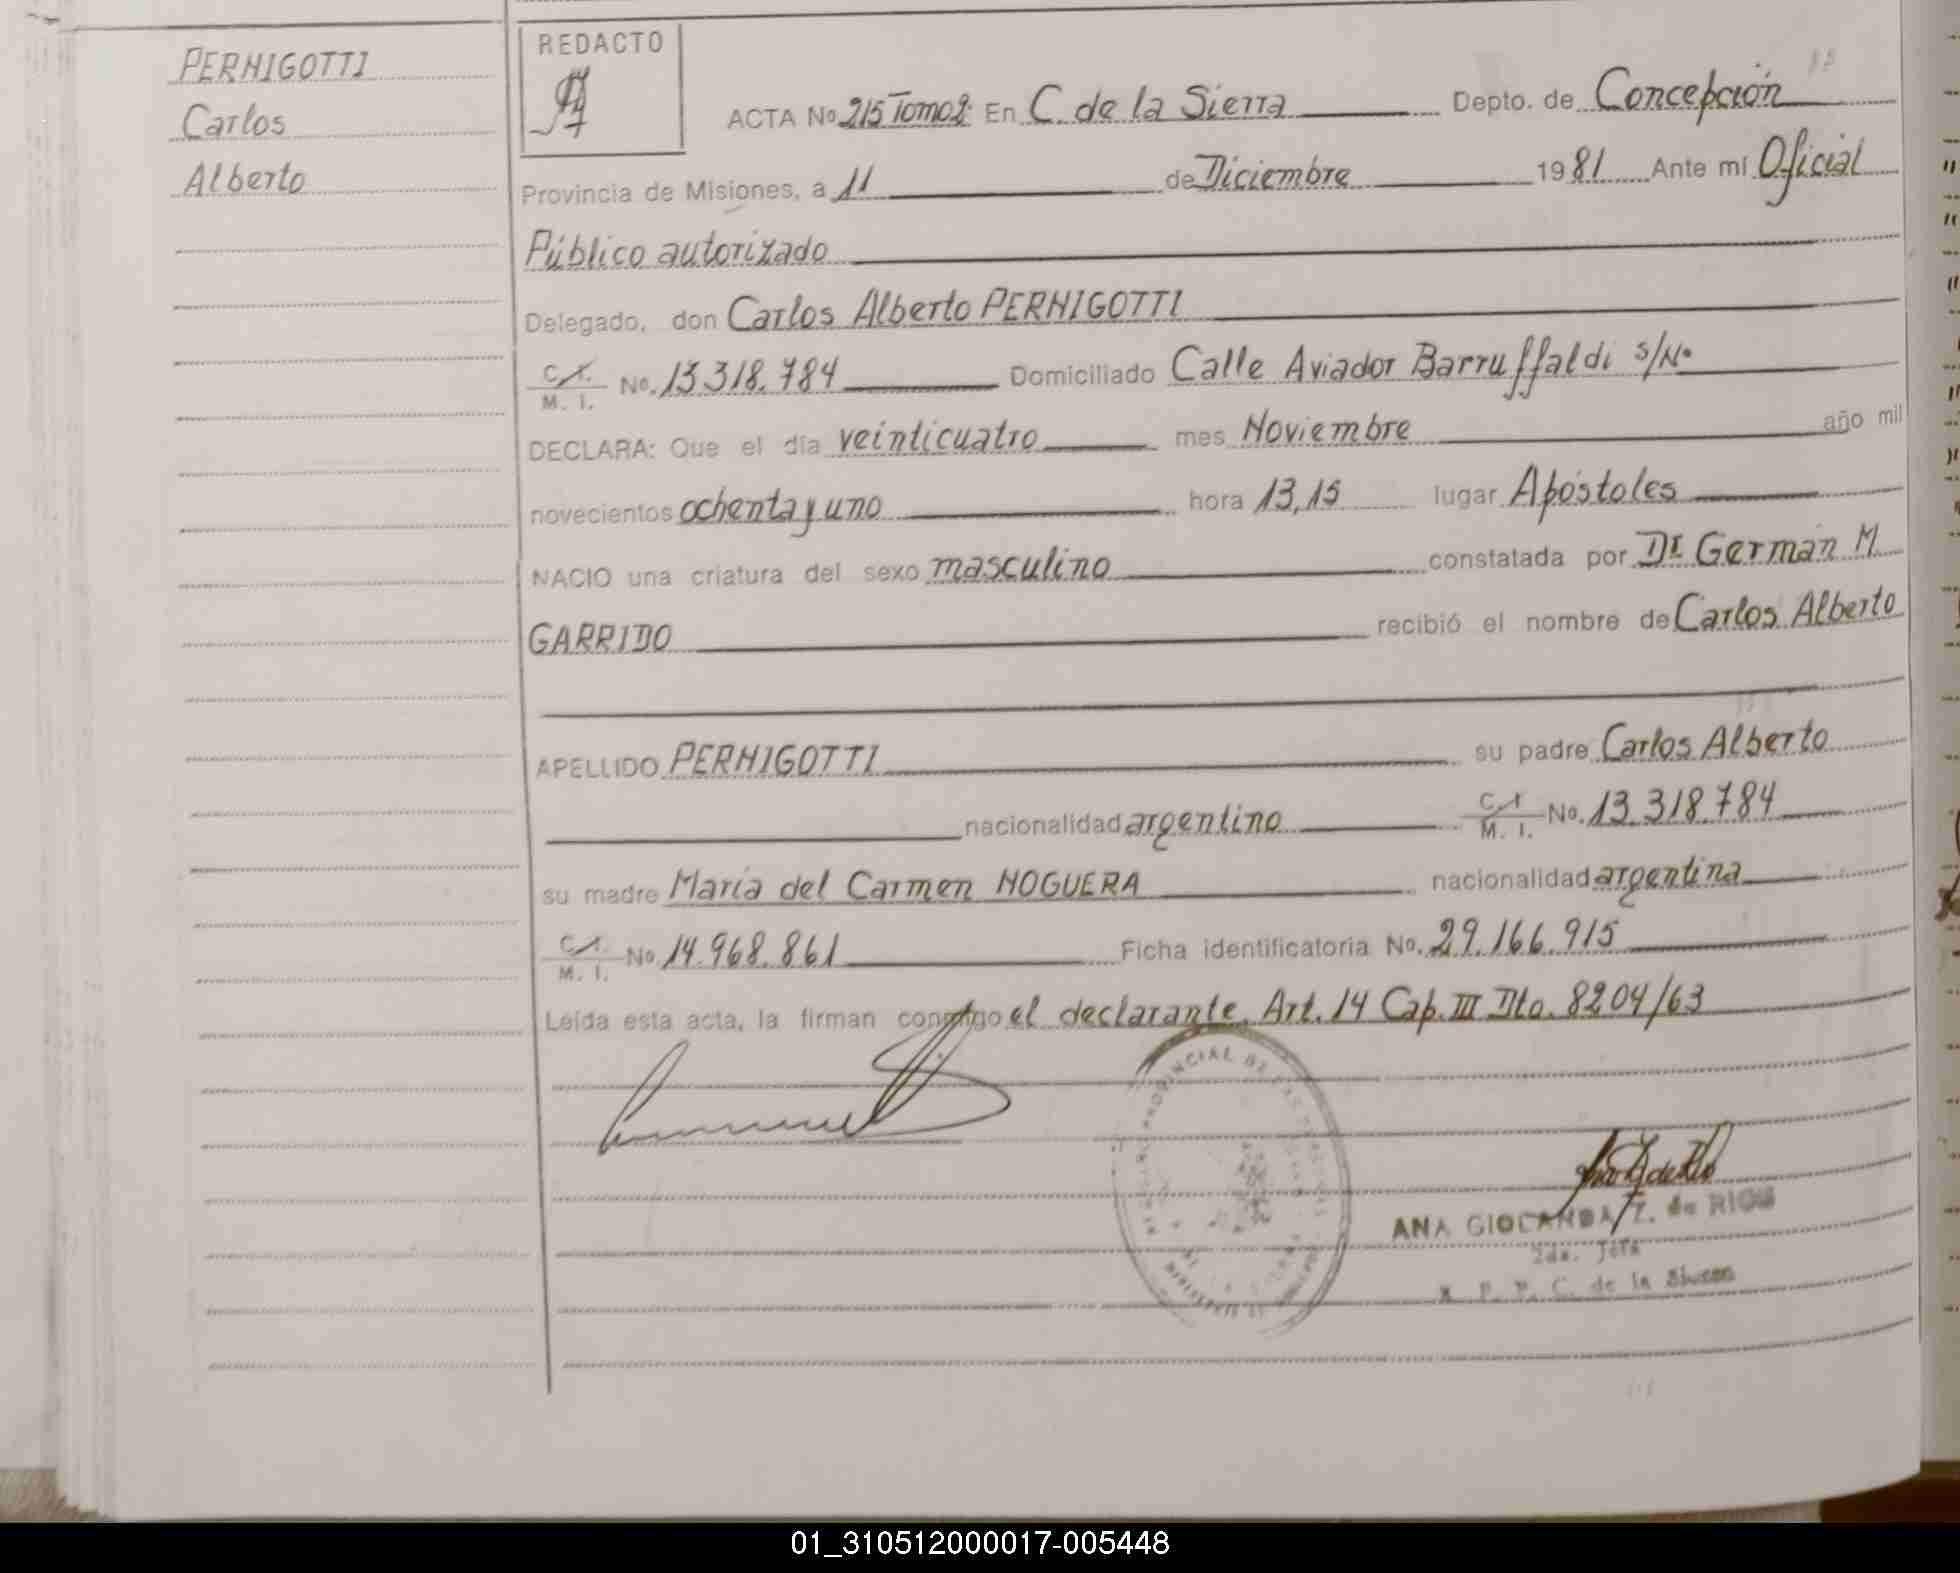 PERNIGOTTI
Carlos
Alberto
REDACTO
ACTA No 215 Tomo 2: En C. de la Sierra Depto. de Concepción
Provincia de Misiones, a 11 de Diciembre 1981 Ante mí Oficial
Público autorizado
Delegado, don Carlos Alberto PERNIGOTTI
C. I. M. I. No. 13.318.784 Domiciliado Calle Aviador Barruffaldi s/Nº
DECLARA: Que el día veinticuatro mes Noviembre año mil
novecientos ochenta y uno hora 13,15 lugar Apóstoles
NACIO una criatura del sexo masculino constatada por Dr German M
GARRIDO recibió el nombre de Carlos Alberto
APELLIDO PERNIGOTTI su padre Carlos Alberto
nacionalidad argentino C. I. M. I. No. 13.318.784
su madre María del Carmen NOGUERA nacionalidad argentina
C. I. M. I. No 14.968.861 Ficha identificatoria No. 29.166.915
Leída esta acta, la firman conmigo el declarante. Art. 14 Cap. III Dto. 8204/63
PROVINCIAL DE
ANA GIOLANDA Z. de RIOS
2da. Jefa
R. P. P. C. de la Sierra
01_310512000017-005448